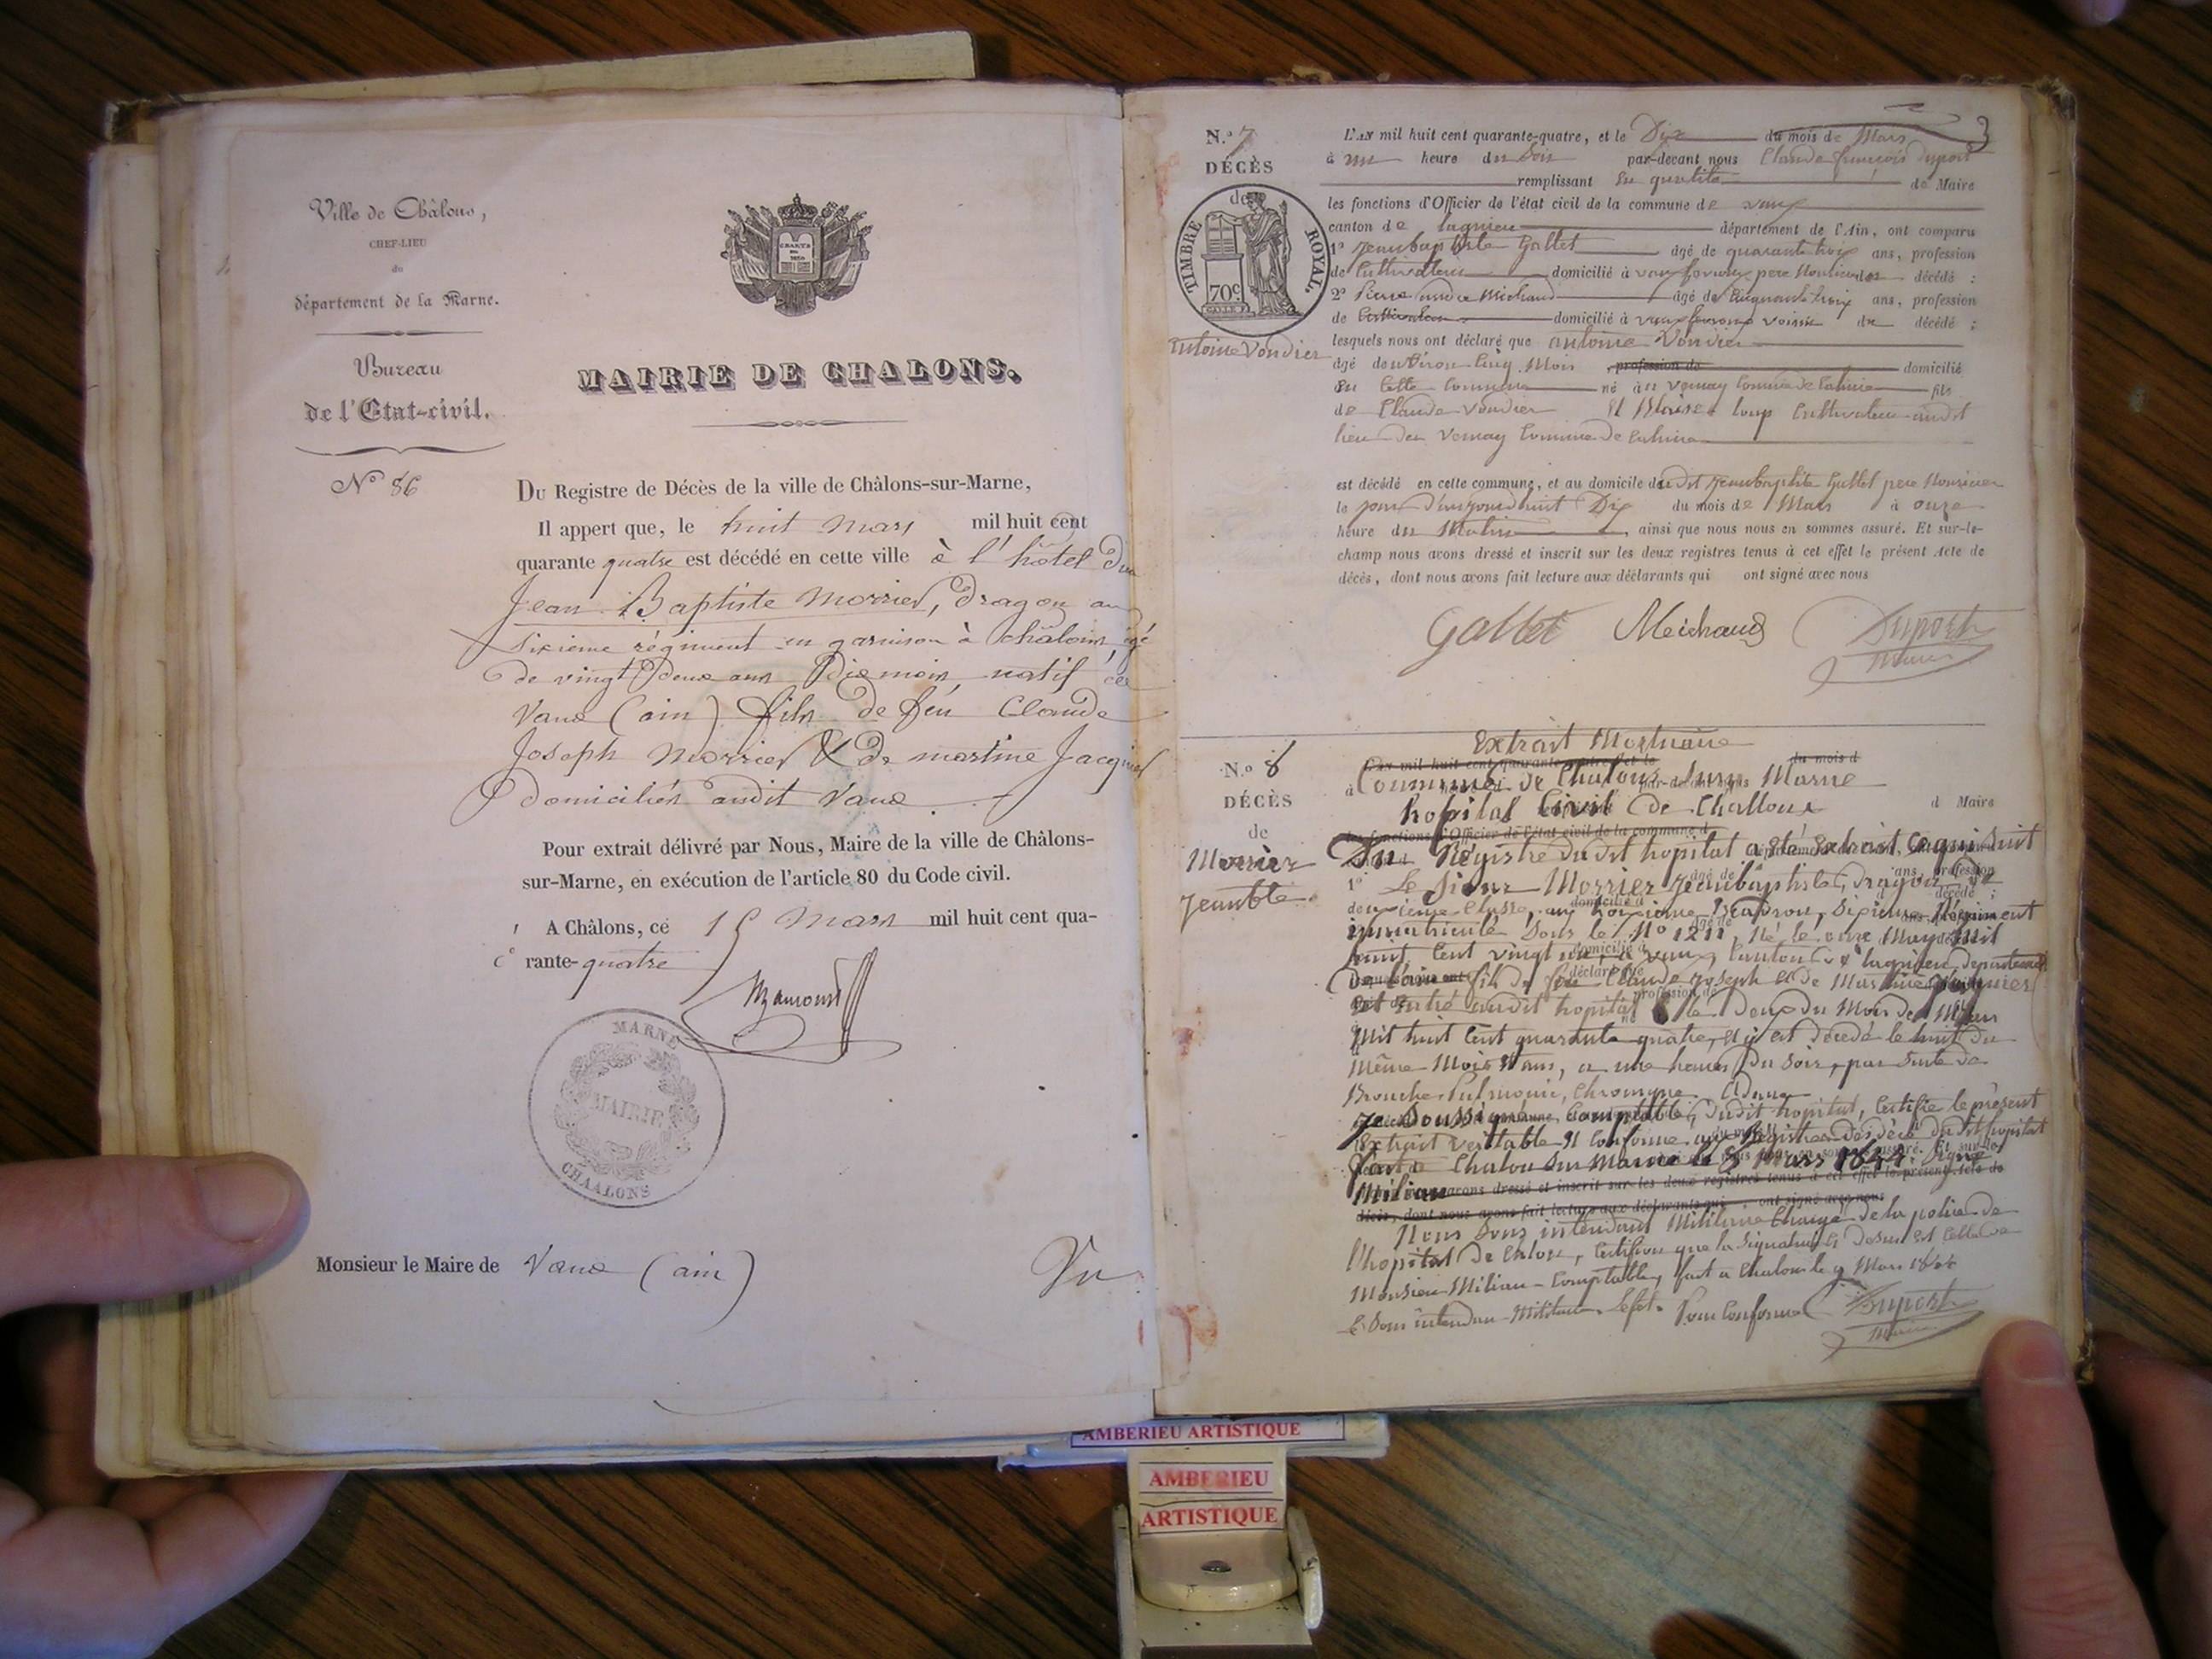 Ville de Châlons,
CHEF-LIEU
du
département de la Marne.
Bureau
de l'Etat-civil.
N° 86
CHARTE
DE
1830
MAIRIE DE CHALONS.
Du Registre de Décès de la ville de Châlons-sur-Marne,
Il appert que, le huit mars mil huit cent
quarante quatre est décédé en cette ville à l'hôtel Dieu
Jean Baptiste Morrier, dragon au
sixieme régiment en garnison à Châlons, agé
de vingt deux ans Dix mois, natif de
Vaux (ain) fils de feu Claude
Joseph Morrier & de martine Jacquier
domiciliés audit Vaux
Pour extrait délivré par Nous, Maire de la ville de Châlons-
sur-Marne, en exécution de l'article 80 du Code civil.
A Châlons, ce 15 Mars mil huit cent qua-
rante-quatre
MARNE
MAIRIE
CHAALONS
Monsieur le Maire de Vaux (ain)
Vu
3
N.° 7
DÉCÈS
de
TIMBRE ROYAL.
70c
Antoine Vondier
L'AN mil huit cent quarante-quatre, et le Dix du mois de Mars
à une heure du Soir par-devant nous Claude françois Duport
remplissant en qualité de Maire
les fonctions d'Officier de l'état civil de la commune de vaux
canton de lagnieu département de l'Ain, ont comparu
1° Jeanbaptiste Gallet âgé de quarante trois ans, profession
de Cultivateur domicilié à vaux père Nouricier décédé :
2° Pierre andré Michaud âgé de Cinquante trois ans, profession
de Cultivateur domicilié à vaux voisin du décédé ;
lesquels nous ont déclaré que antoine Vondier
âgé denviron Cinq Mois profession de domicilié
en Cette Commune né à Vernay Commune de fils
de Claude Vondier Et loup Cultivateur audit
lieu du Vernay Commune de
est décédé en cette commune, et au domicile dudit Jeanbaptiste Gallet pere Nouricier
le jour D'aujourdhuit Dix du mois de Mars à onze
heure du Matin, ainsi que nous nous en sommes assuré. Et sur-le-
champ nous avons dressé et inscrit sur les deux registres tenus à cet effet le présent Acte de
décès, dont nous avons fait lecture aux déclarants qui ont signé avec nous
Gallet Meichaud Duport
Maire
N.° 8
DÉCÈS
de
Morrier
Jeanbte
Extrait Mortuaire
Commune de Chalons Sur Marne
hopital Civil De Challons
d Maire
Du Régistre du dit hopital a été Extrait Cequi Suit
1° Le Sieur Morrier Jeanbaptiste, Dragon De
deuxieme Classe, au Escadron, Sixieme Régiment
immatriculé Sous le N° 1211, Né le onze May Mil
huit Cent vingt un, à vaux, Canton de lagnieu, departement
De l'ain fils de feu Claude Joseph et de Martine Jaquier
Est Entré audit hopital le Deux du Mois de Mars
Mil huit Cent quarante quatre, Et y est décédé le huit Du
Même Mois & ans, a une heures Du Soir, par Suite de
Je Soussigné Comptable, dudit hopital, Certifie le présent
Extrait veritable Et Conforme aux Registres des décé du dit hopital
fait à Chalon Sur Marne le 8 Mars 1844. Signé
Milian
Nous Sous intendant Militaire Chargé de la police de
l'hopital De Chalon, Certifion que la Signature Ci Desus est Celle de
Monsieur Milian Comptable, fait a Chalon le 9 Mars 1844
Le Sous intendan Militaire. Pour Conforme Duport
Maire
AMBERIEU ARTISTIQUE
AMBERIEU
ARTISTIQUE